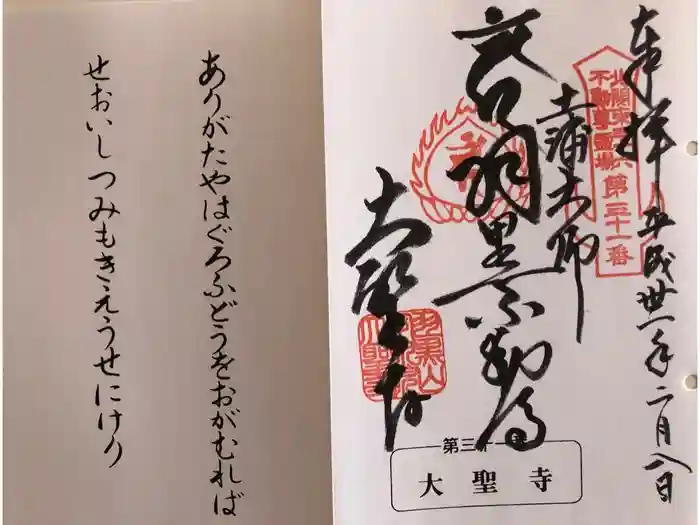 奉拝 平成丗一年二月八日
北関東三十六
不動尊霊場
第三十一番
土浦大師
羽黒不動尊
大聖寺
羽黒山
第三十一番
大聖寺
ありがたやはぐろふどうをおがむれば
せおいしつみもきえうせにけり